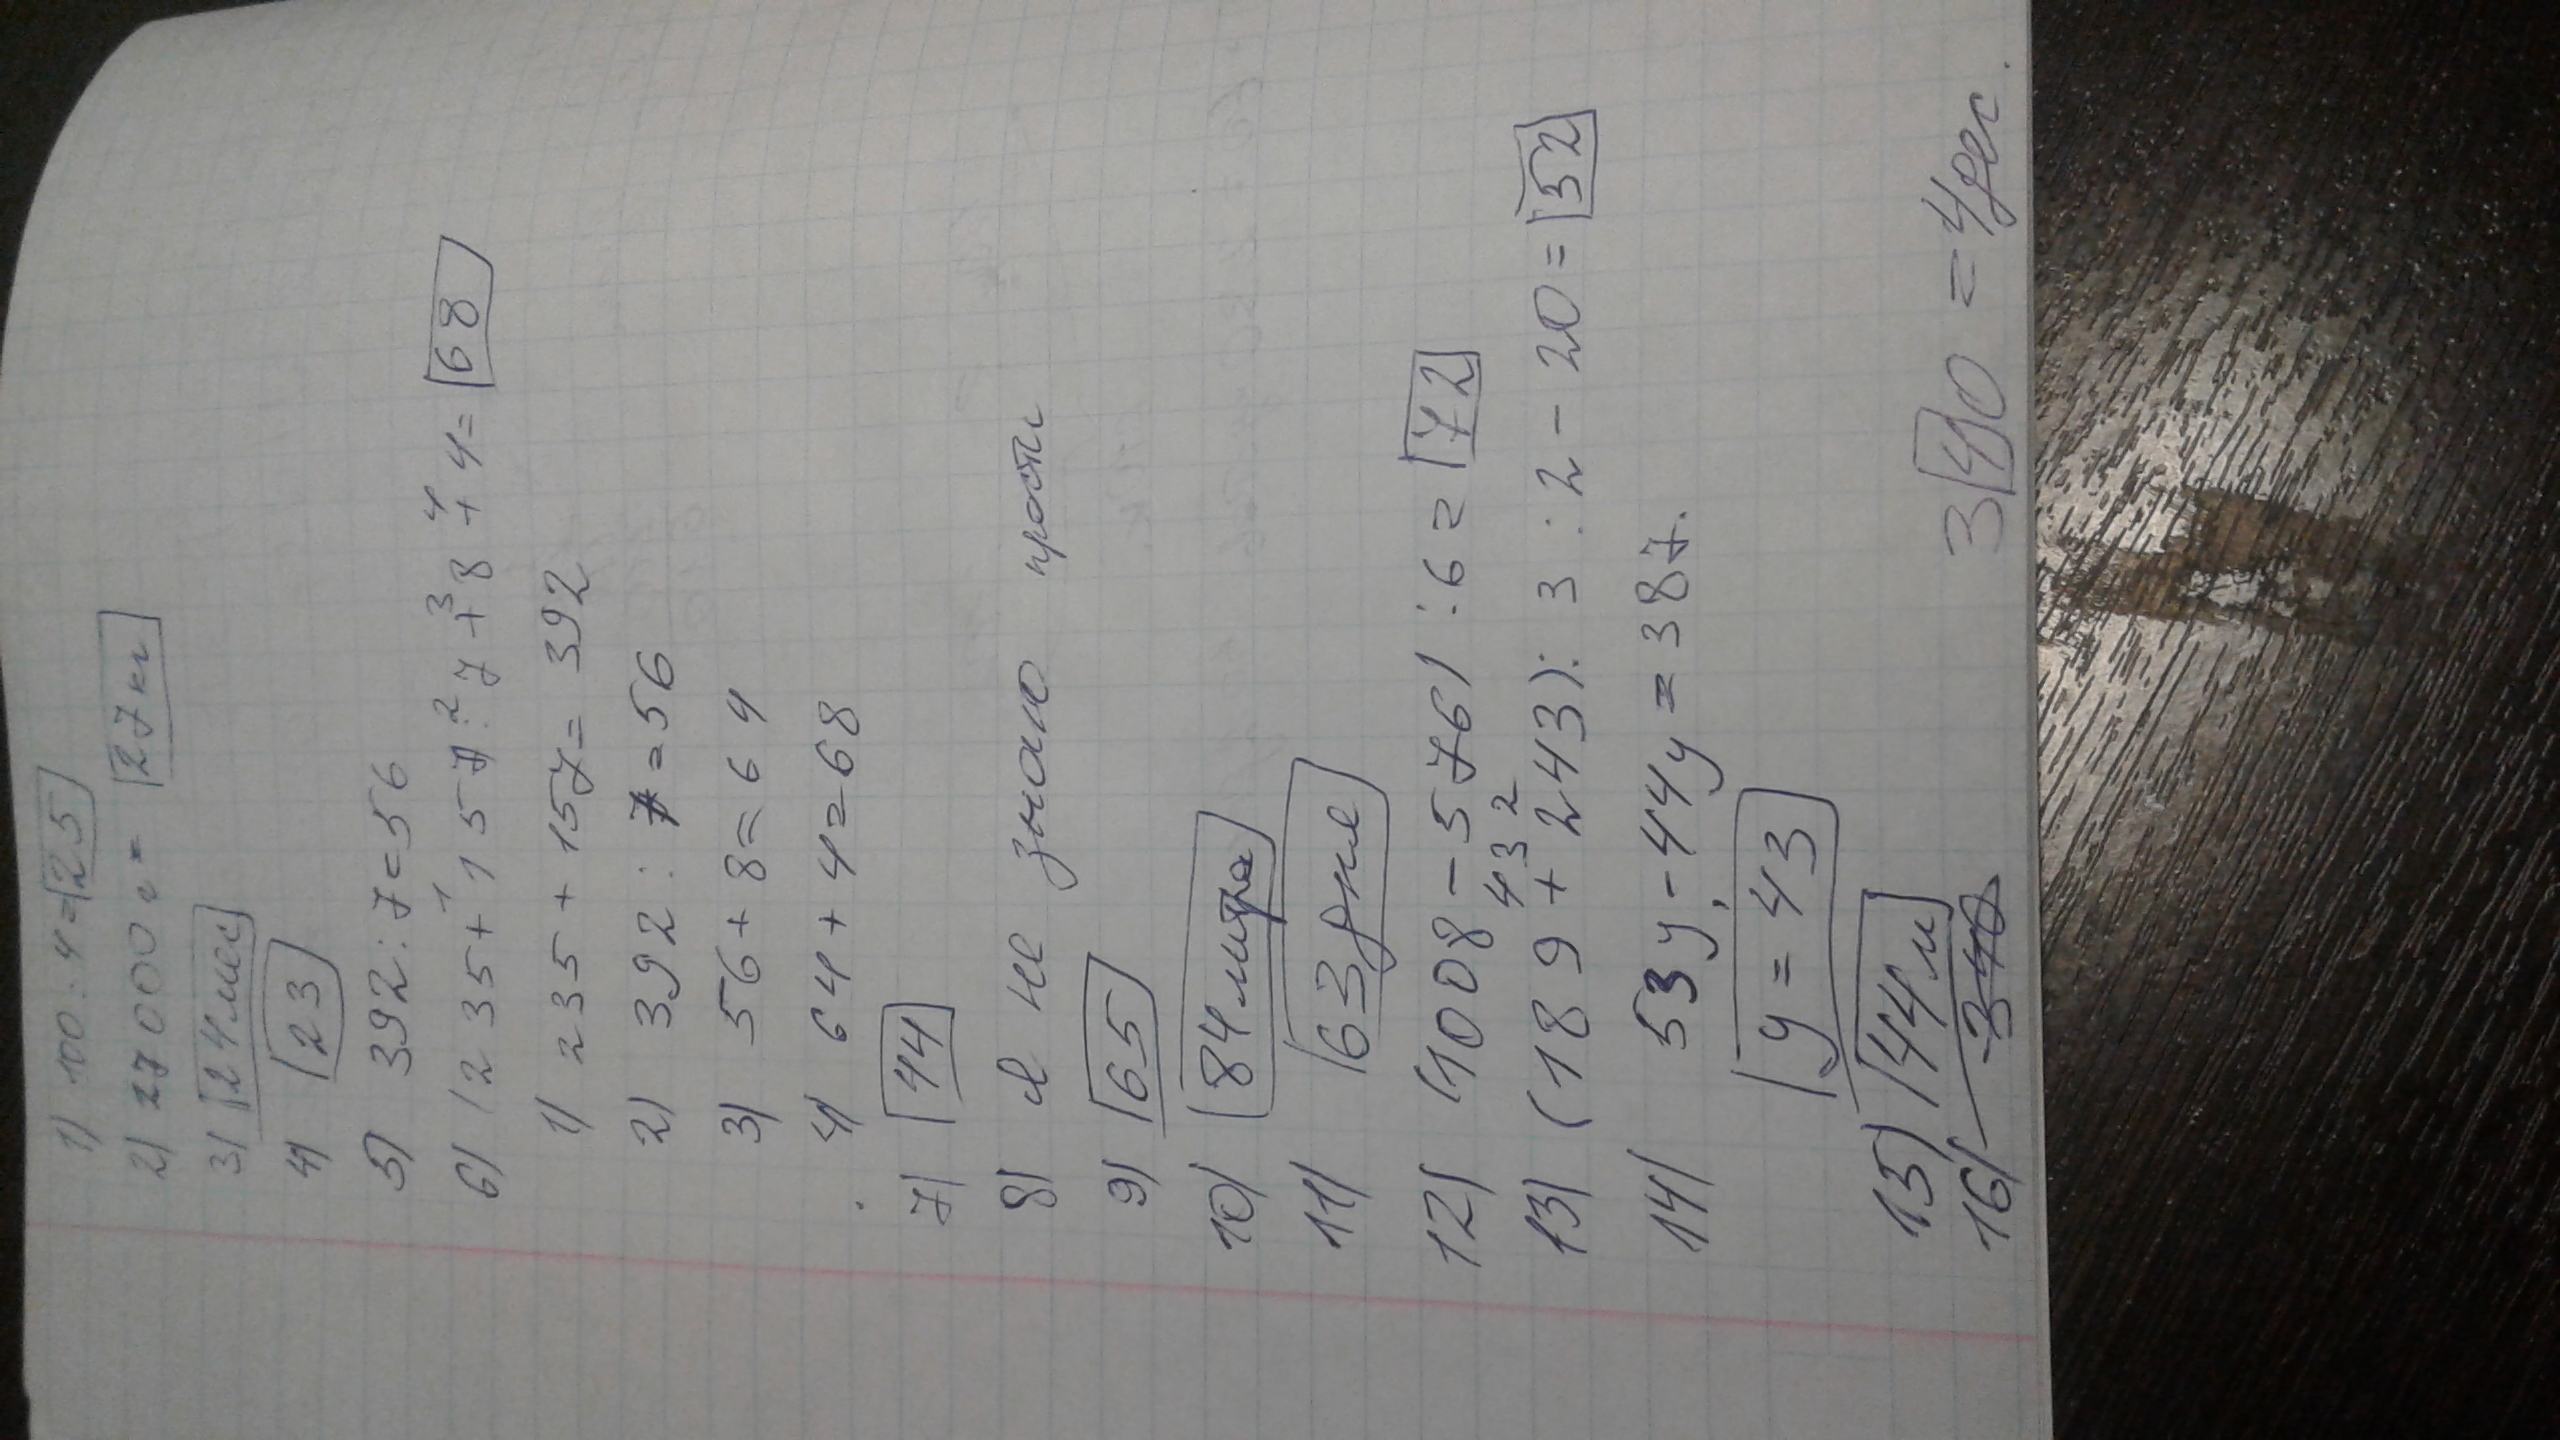 1) 100 : 4 = 25
2) 27 000 г = 27 кг
3) 24 мес
4) 23
5) 392 : 7 = 56
6) (235 +¹ 157) :² 7 +³ 8 +⁴ 4 = 68
1) 235 + 157 = 392
2) 392 : 7 = 56
3) 56 + 8 = 64
4) 64 + 4 = 68
7) 44
8) я не знаю прости
9) 65
10) 84 литра
11) 63 дня
12) (1008 - 576) : 6 = 72
432
13) (189 + 243) : 3 : 2 - 20 = 52
14) 53y - 44y = 387.
y = 43
15) 144 м
16) 340
340 = 4 дес.